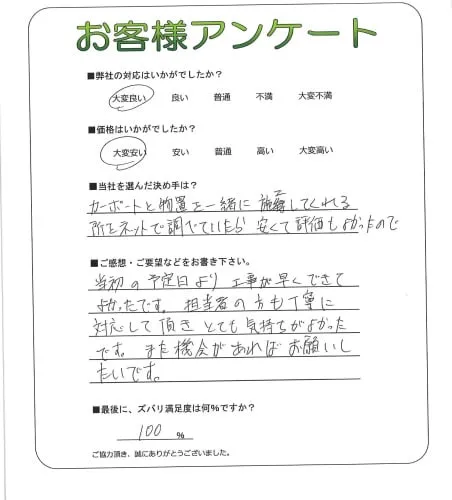 お客様アンケート
■弊社の対応はいかがでしたか？
大変良い 良い 普通 不満 大変不満
■価格はいかがでしたか？
大変安い 安い 普通 高い 大変高い
■当社を選んだ決め手は？
カーポートと物置を一緒に施工してくれる
所をネットで調べていたら 安くて評価もよかったので
■ご感想・ご要望などをお書き下さい。
当初の予定日より工事が早くできて
よかったです。担当者の方も丁寧に
対応して頂きとても気持ちがよかった
です。また機会があればお願いし
たいです。
■最後に、ズバリ満足度は何％ですか？
100 %
ご協力頂き、誠にありがとうございました。